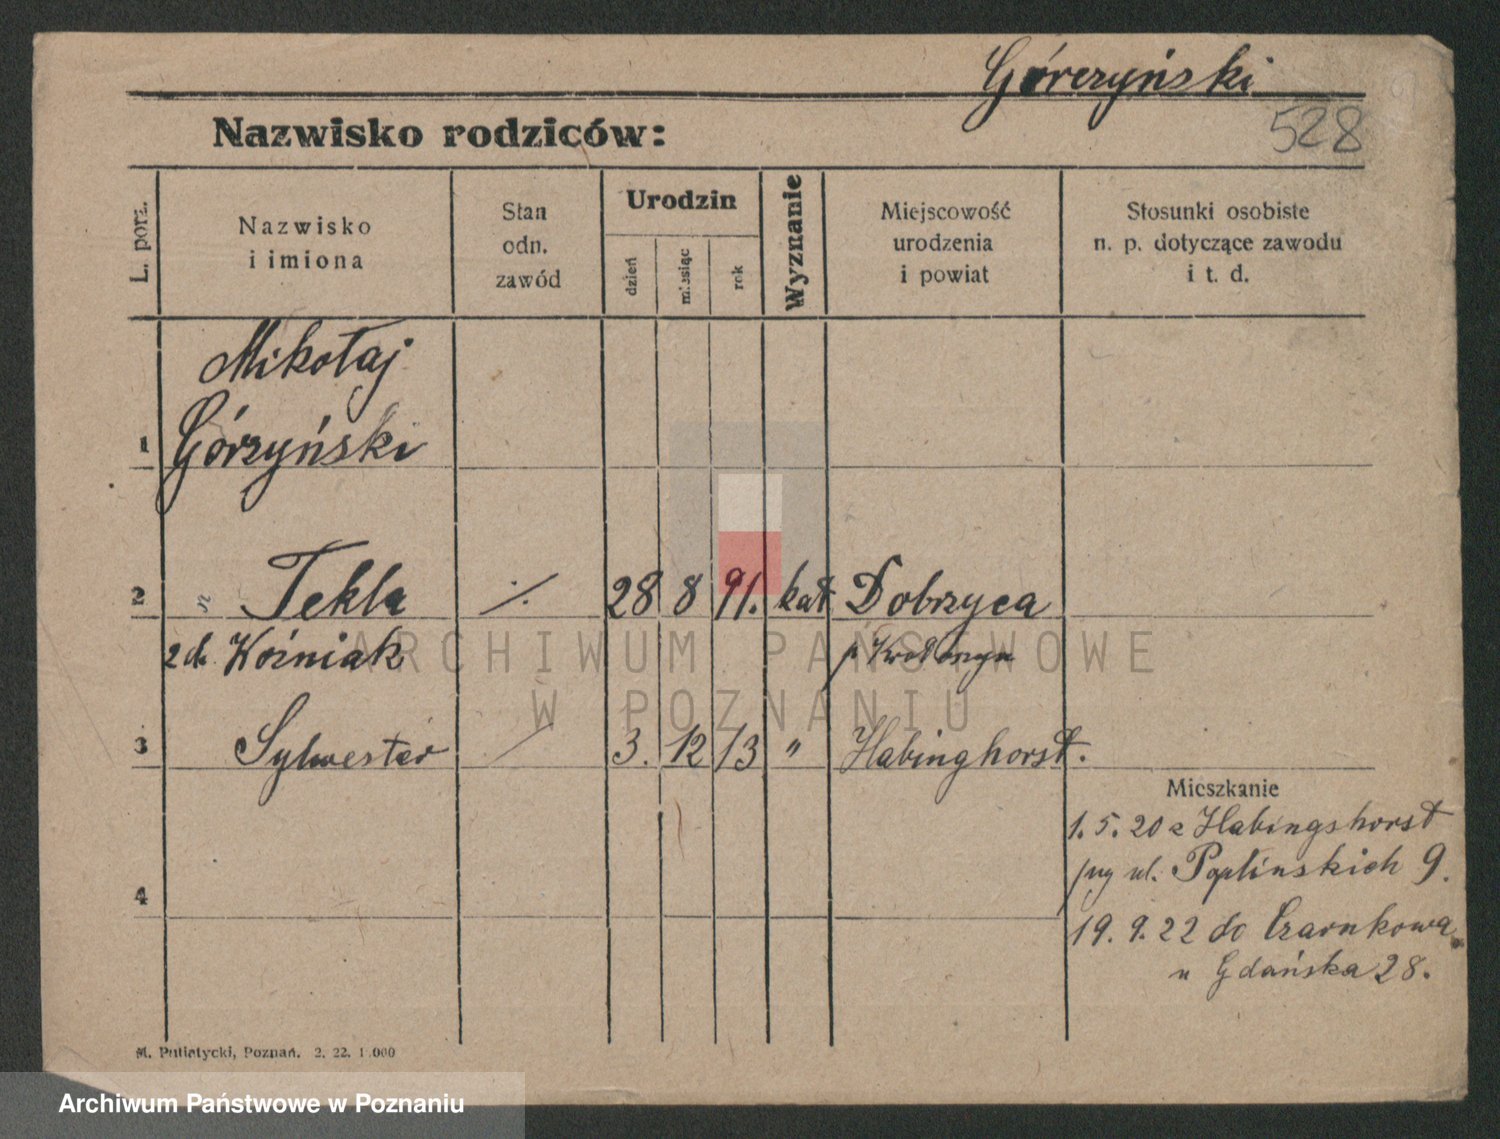 Górczyński
528
Nazwisko rodziców:
L. porz.
Nazwisko
i imiona
Stan
odn.
zawód
Urodzin
dzień
miesiąc
rok
Wyznanie
Miejscowość
urodzenia
i powiat
Stosunki osobiste
n. p. dotyczące zawodu
i t. d.
Mikołaj
1 Górzyński
2 Tekla ./. 28 8 91. kat Dobrzyca
Koźniak
3 Sylwester / 3. 12 13 " Habinghorst.
Mieszkanie
1. 5. 20 z Habingshorst
ul. Poplinskich 9.
4
19. 9. 22 do Czarnkowa
u Gdańska 28.
M. Putiatycki, Poznań. 2. 22. 1.000
ARCHIWUM PAŃSTWOWE
W POZNANIU
Archiwum Państwowe w Poznaniu